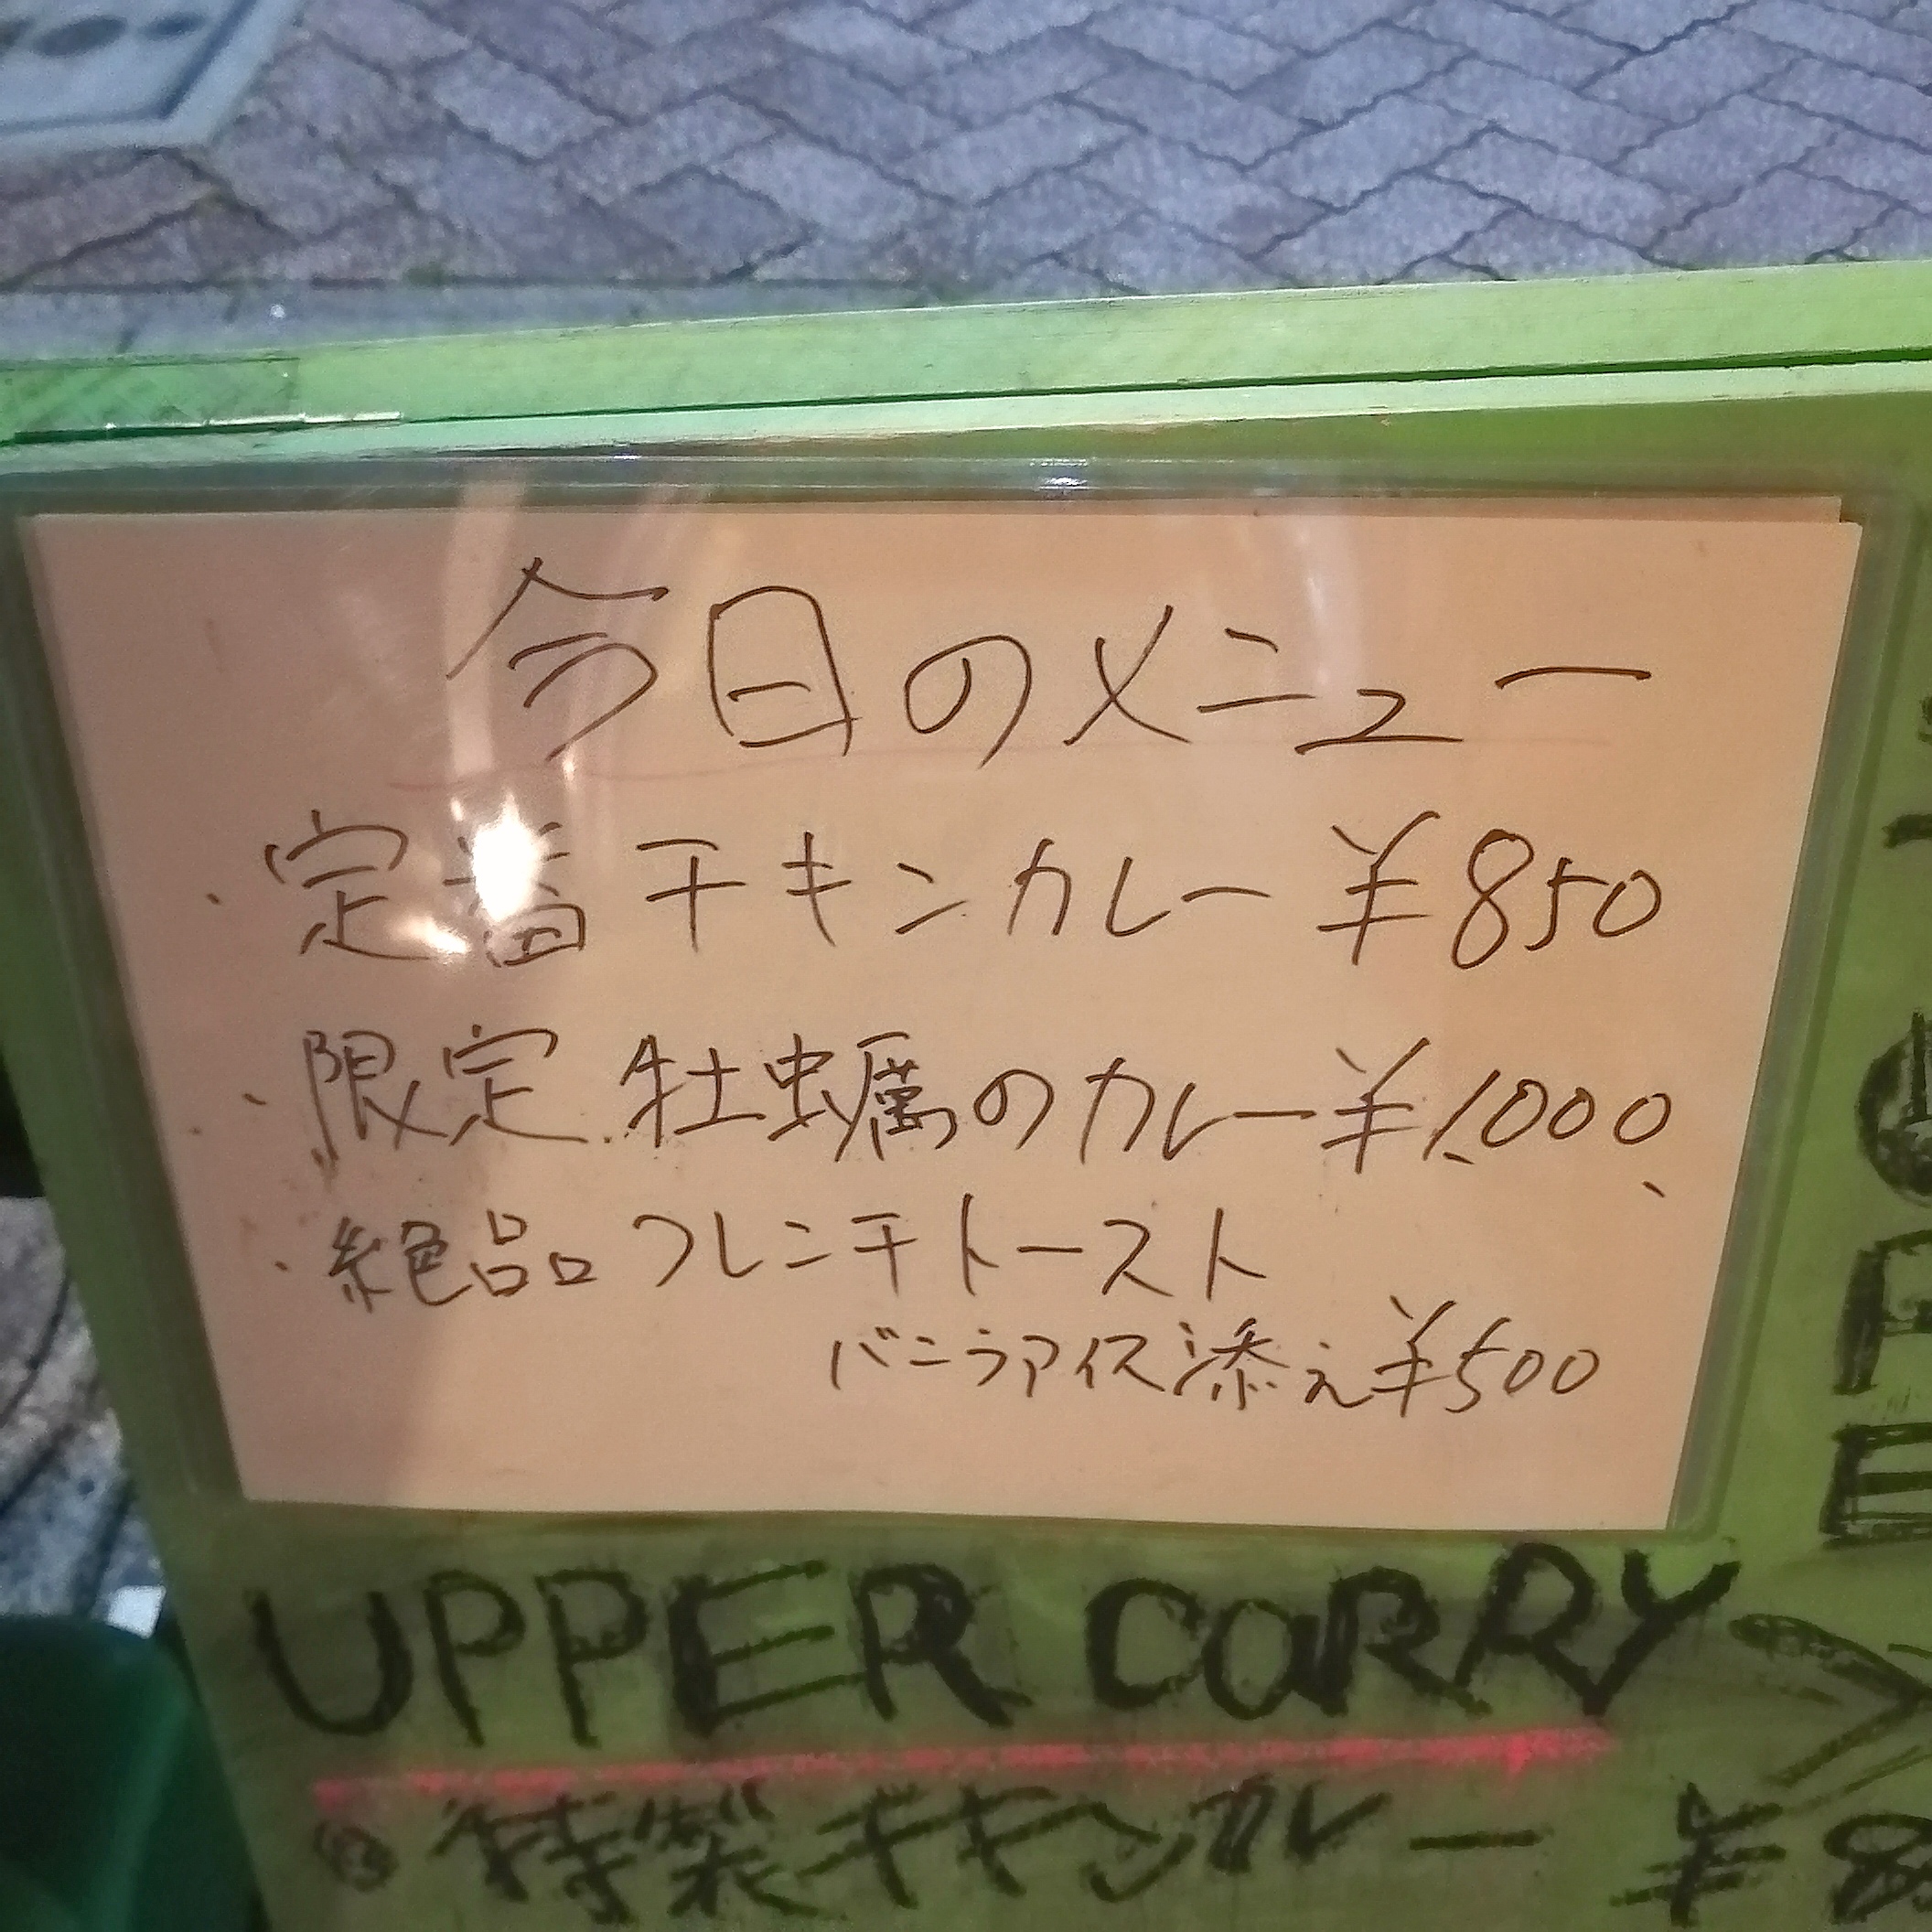 今日のメニュー
・定番チキンカレー ¥850
・限定 牡蠣のカレー ¥1,000
・絶品 フレンチトースト
バニラアイス添え ¥500
UPPER CORRY
特製チキンカレー ¥8